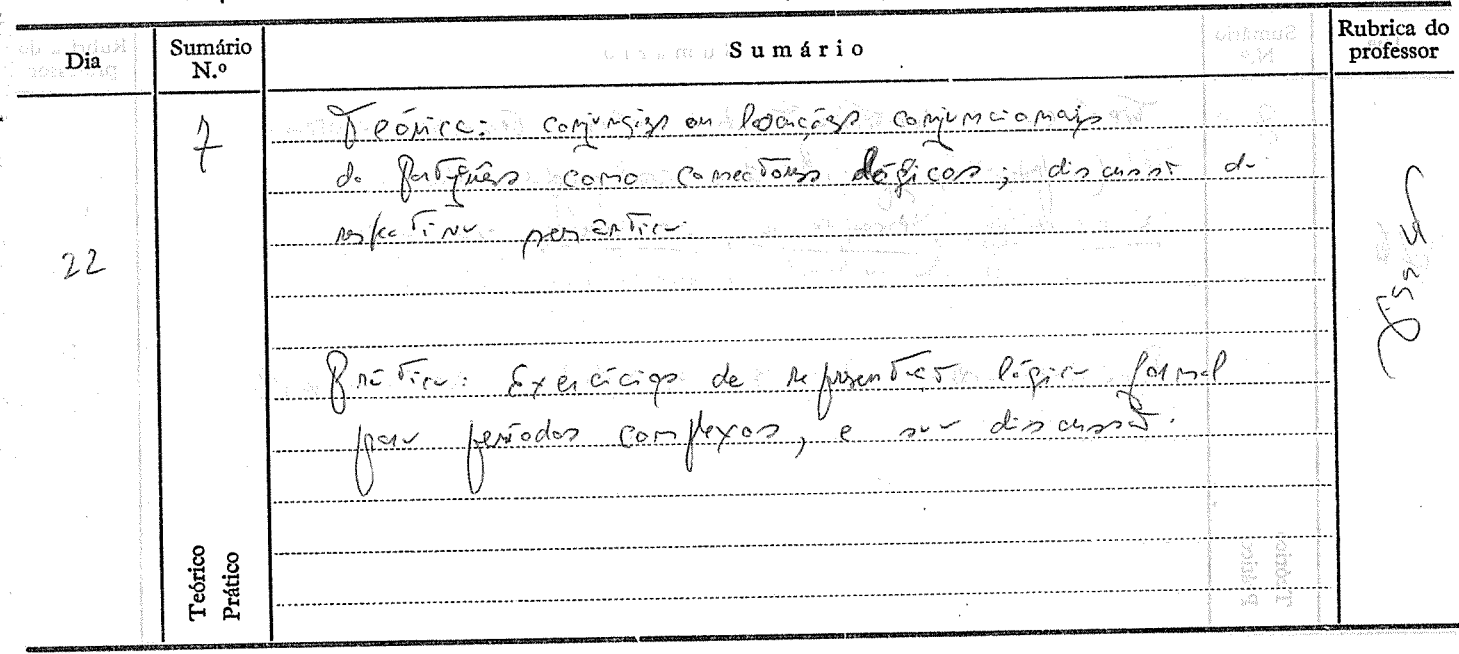 Dia
Sumário N.º
Sumário
Rubrica do professor
22
7
Teórica: conjunções ou locuções conjuncionais
do português como conectores lógicos; discussão da
respectiva semântica.
Prática: Exercícios de representação lógica formal
para períodos complexos, e sua discussão.
Teórico
Prático